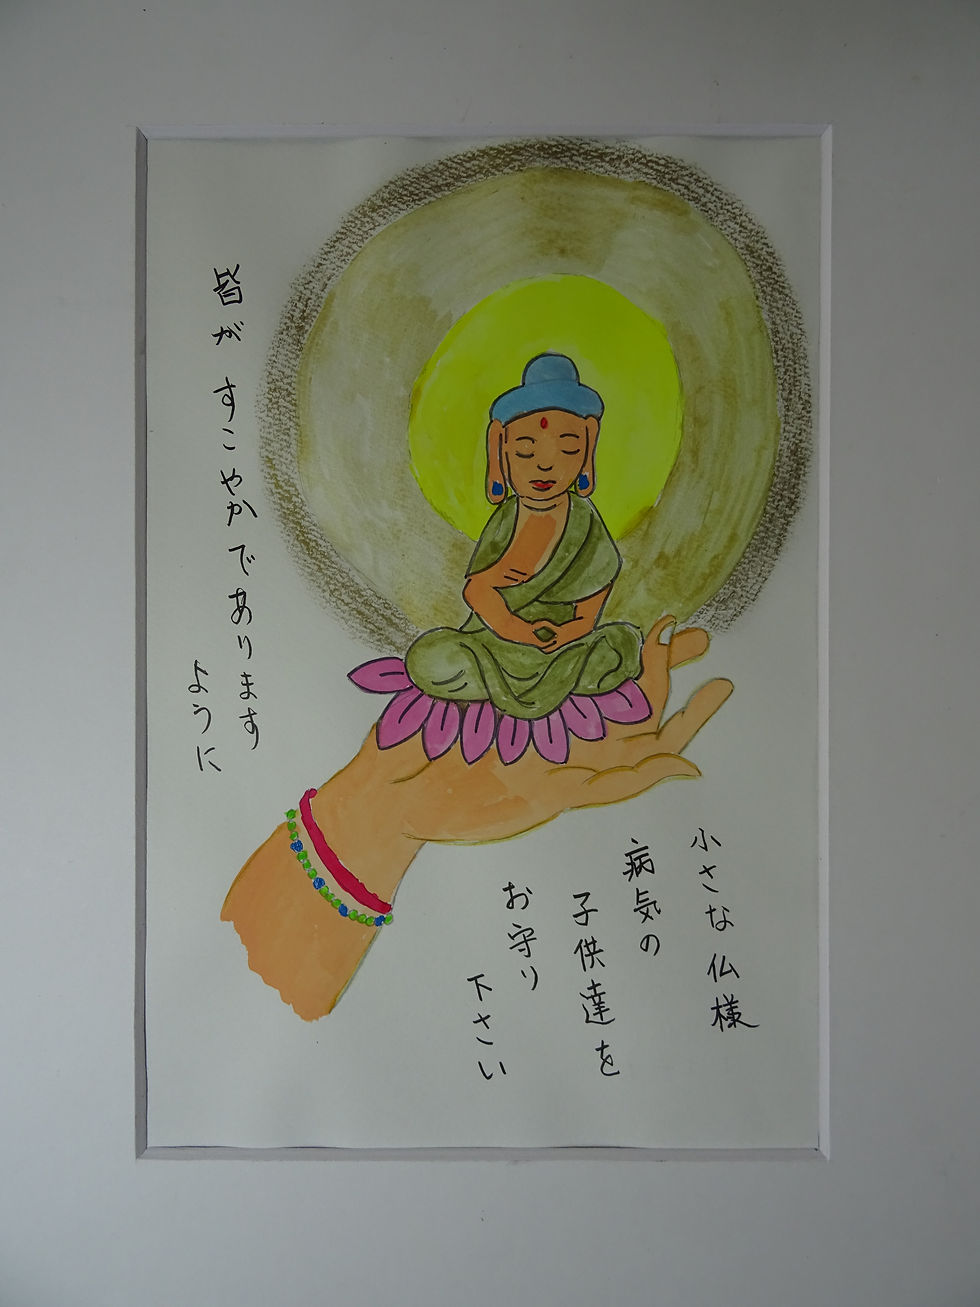 小さな仏様
病気の
子供達を
お守り
下さい
皆が すこやかであります
ように